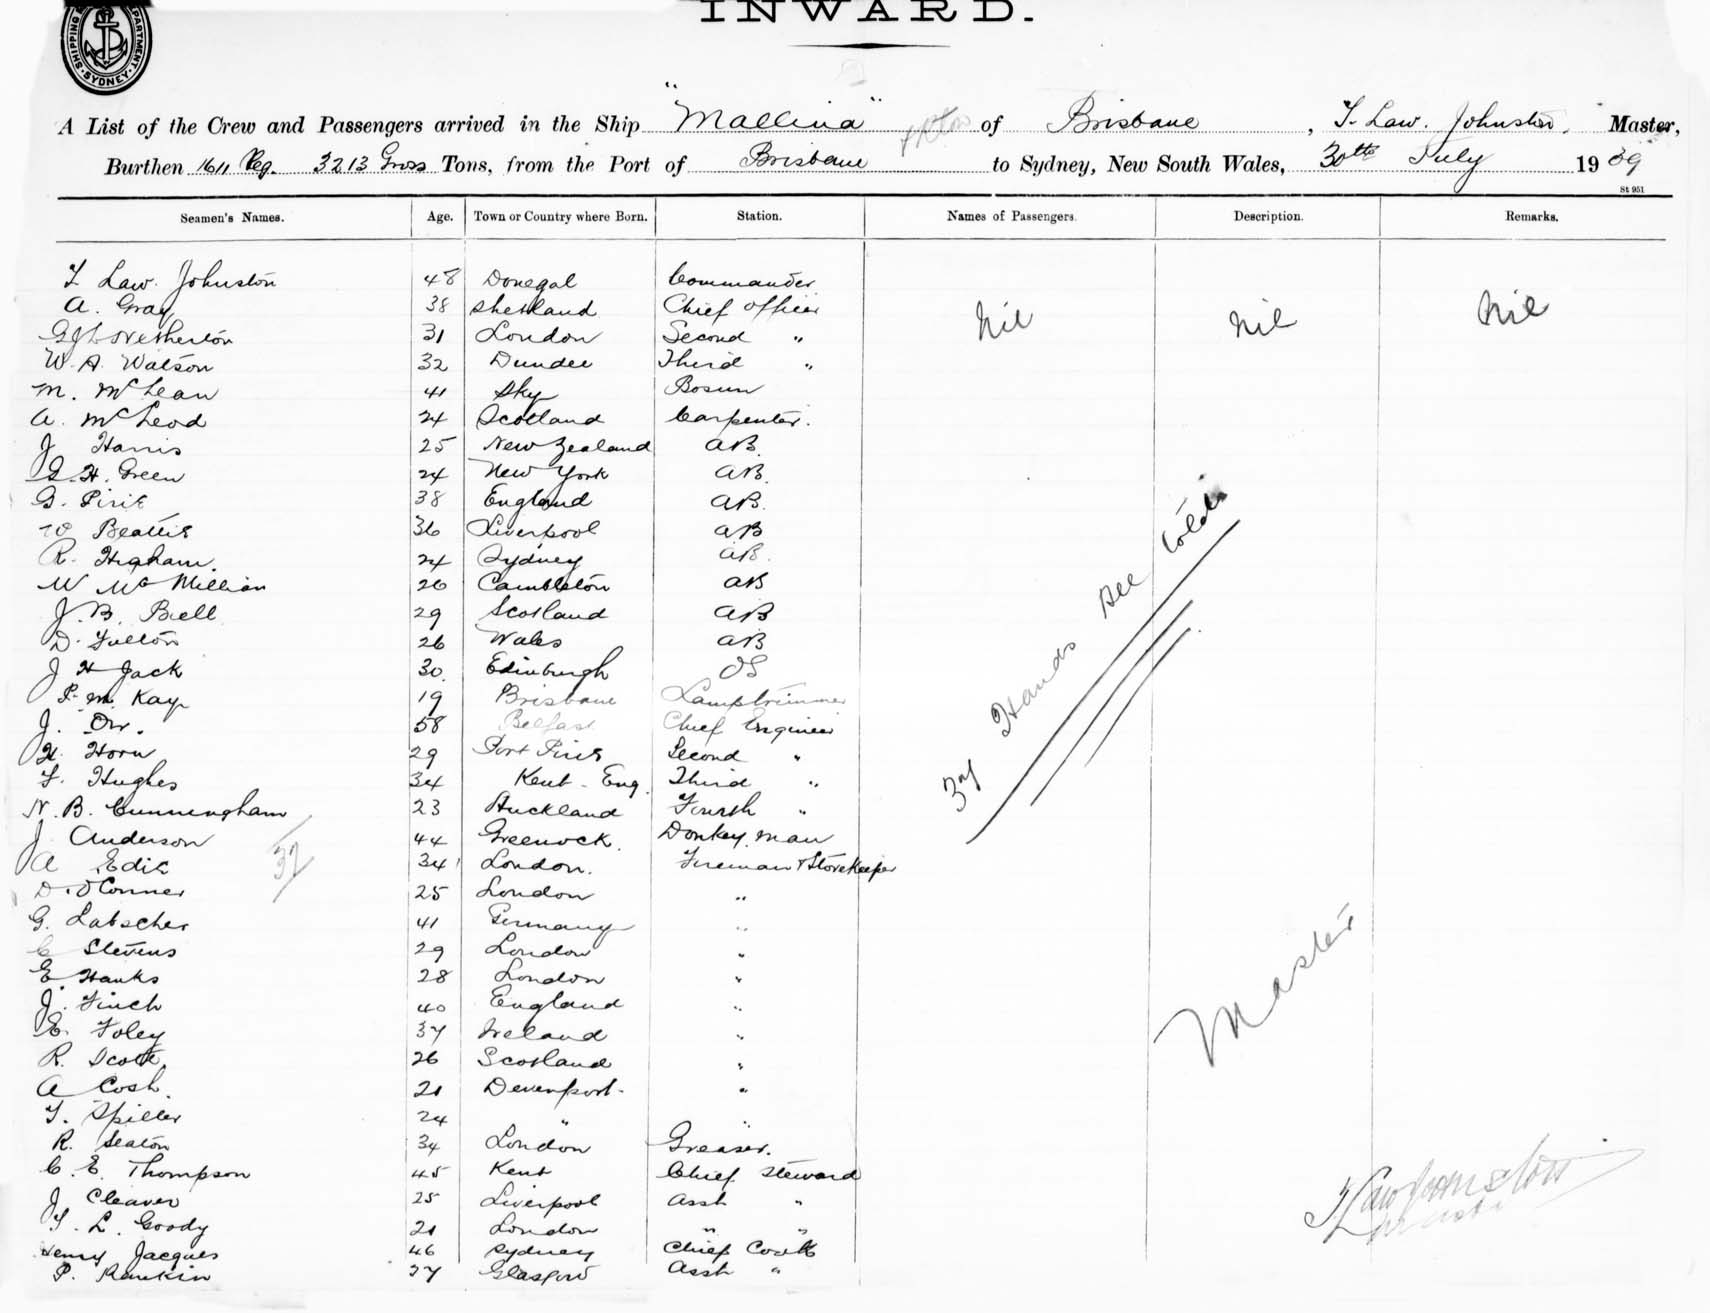 INWARD.
SHIPPING DEPARTMENT. SYDNEY.
A List of the Crew and Passengers arrived in the Ship "Mallina" of Brisbane, T. Law. Johnston. Master,
Burthen 1611 Reg. 3213 Gross Tons, from the Port of Brisbane to Sydney, New South Wales, 30th July 1939
St 951
Seamen's Names. Age. Town or Country where Born. Station. Names of Passengers. Description. Remarks.
T Law. Johnston 48 Donegal Commander
A. Gray 38 Shetland Chief Officer Nil Nil Nil
31 London Second "
W. A. Watson 32 Dundee Third "
M. McLean 41 Sky Bosun
A. McLeod 24 Scotland Carpenter.
J Harris 25 New Zealand AB.
H. Green 24 New York AB.
G. Pirie 38 England AB.
W Beattie 36 Liverpool AB
R. Higham. 24 Sydney AB.
W McMillian 26 Cambleton AB
J. B. Bell 29 Scotland AB
D. Fulton 26 Wales AB
J H Jack 30. Edinburgh OS
P. M. Kay 19 Brisbane Lamptrimmer
J. Orr. 58 Belfast Chief Engineer
H. Horn 29 Port Pirie Second "
F. Hughes 34 Kent - Eng. Third "
N. B. Cunningham 23 Auckland Fourth "
J Anderson 44 Greenock. Donkey man
A Edie 34 London. Fireman & StoreKeeper
D. O'Conner 25 London "
G. Labscher 41 Germany "
C Stevens 29 London "
E. Hanks 28 London "
J. Finch 40 England "
E. Foley 37 Ireland "
R. Scott. 26 Scotland "
A Cosh. 21 Devenport. "
T. Spiller 24 " "
R. Seaton 34 London Greaser.
C. E. Thompson 45 Kent Chief Steward
J Cleaver 25 Liverpool Asst "
L. Goody 21 London " "
Henry Jacques 46 Sydney Chief Cook
P. Rankin 27 Glasgow Asst "
37
37 Hands All told
Master
T. Law Johnston